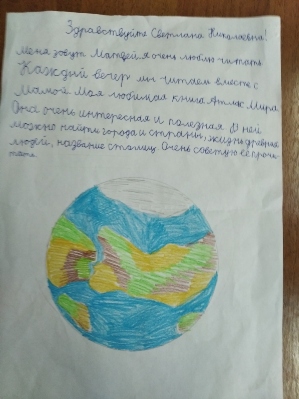 Здравствуйте Светлана Николаевна!
Меня зовут Матвей я очень люблю читать
Каждый вечер мы читаем вместе с
Мамой. Моя любимая книга Атлас Мира
Она очень интересная и полезная В ней
можно найти города и страны, жизнь древних
людей, название столиц. Очень советую её прочи-
тать.